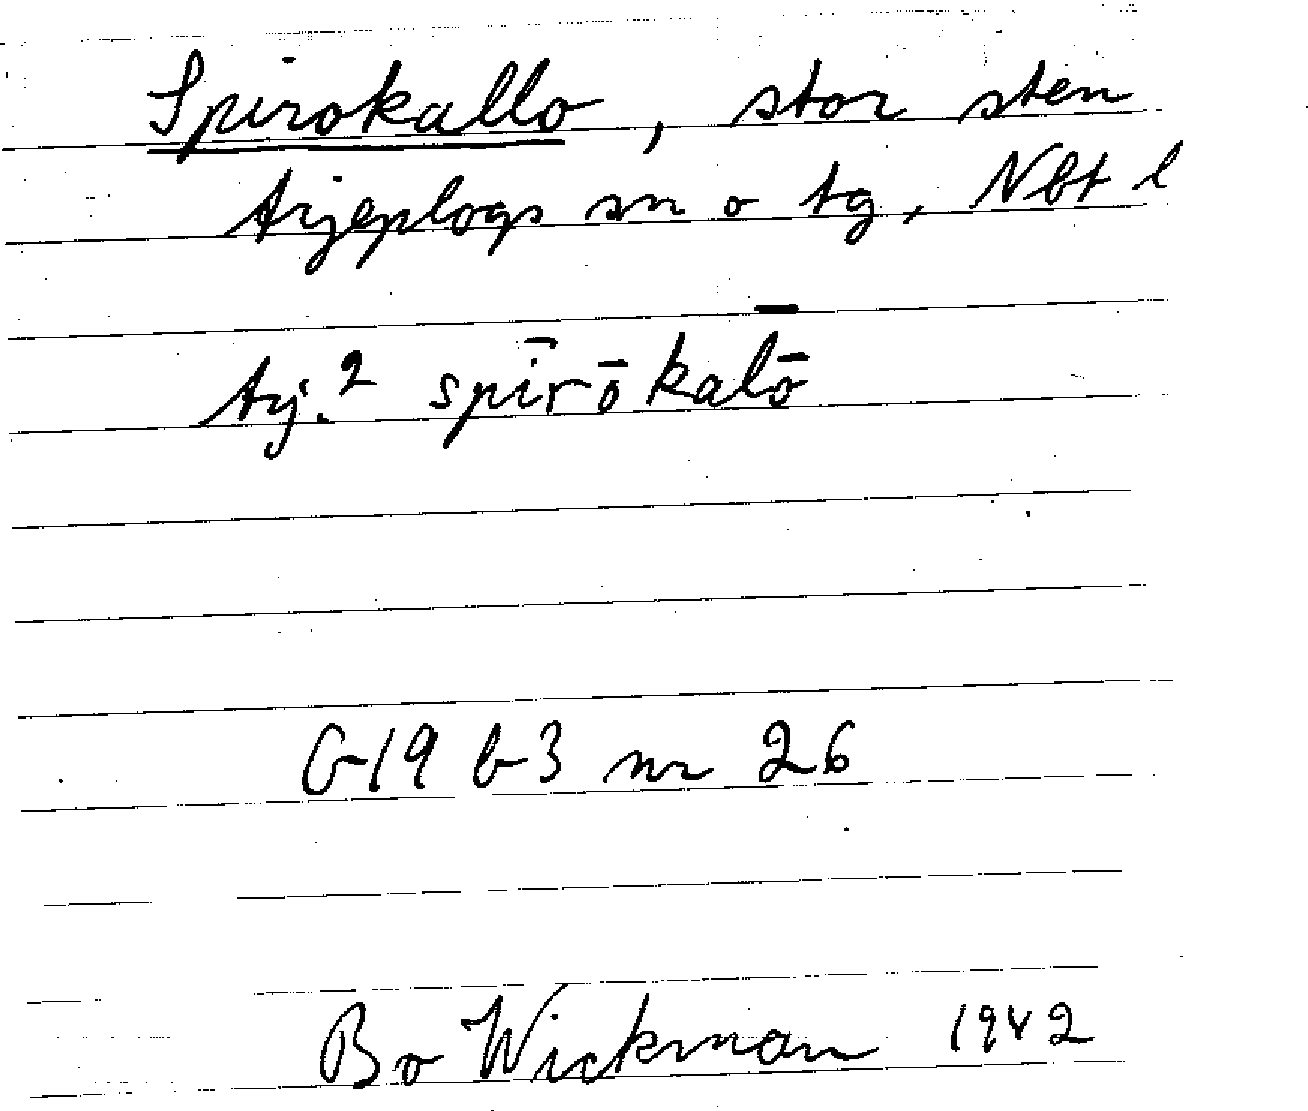 Spirokallo, stor sten
Arjeplogs sn o tg, Nbt l
Aj.2 spī̆rōkal̄ō
G19 b3 nr 26
Bo Wickman 1942